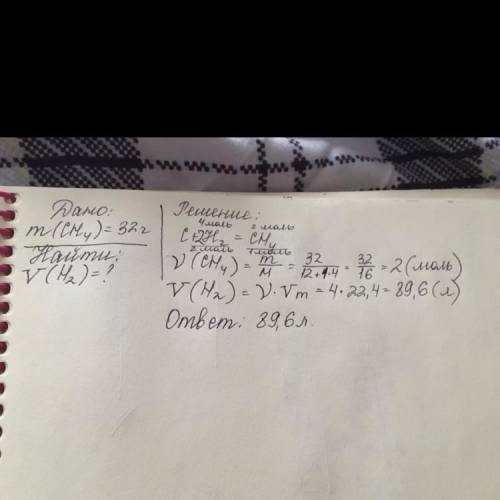 Дано:
m(CH4)=32г
Найти:
V(H2)=?
Решение:
4 моль 2 моль
C+2H2=CH4
2 моль 1 моль
ν(CH4)=m/M=32/12+1·4=32/16=2(моль)
V(H2)=ν·Vm=4·22,4=89,6(л)
Ответ: 89,6л.